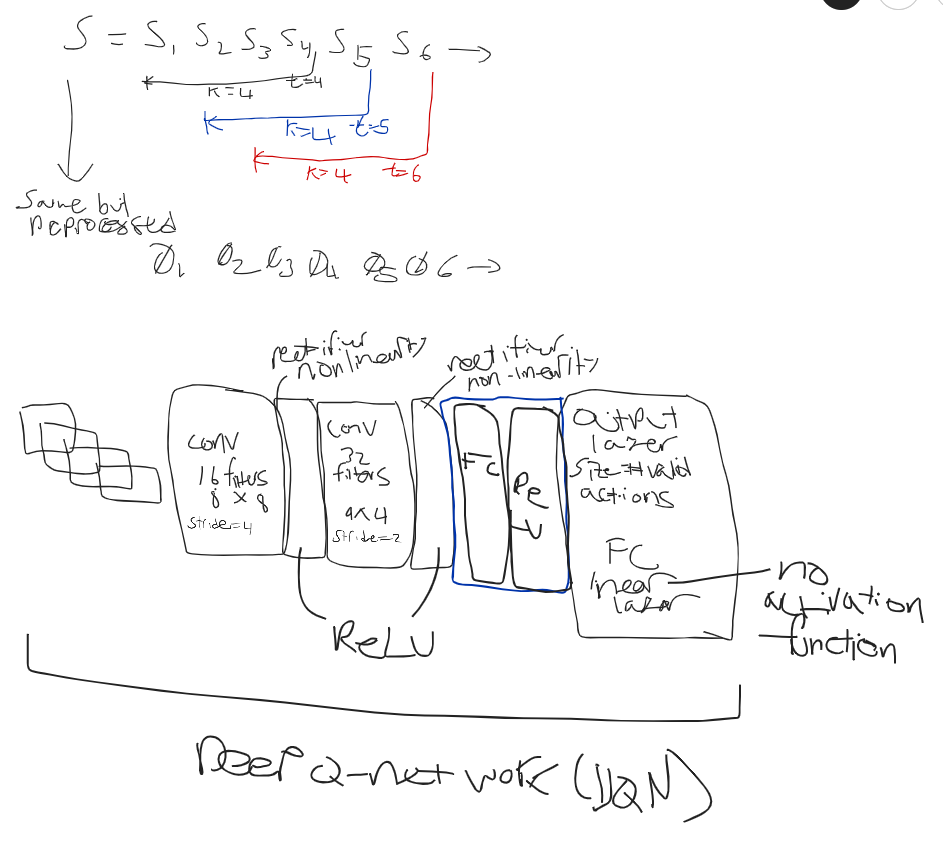 S = S1 S2 S3 S4 S5 S6 →
K=4 t=4
K=4 t=5
K=4 t=6
Same but
Preprocessed
Ø1 Ø2 Ø3 Ø4 Ø5 Ø6 →
rectifier
nonlinearity
rectifier
non-linearity
conv
16 filters
8 x 8
stride=4
conv
32
filters
4x4
stride=2
FC
ReLU
output
layer
size=#valid
actions
FC
linear
layer
no
activation
function
ReLU
Deep Q-network (DQN)